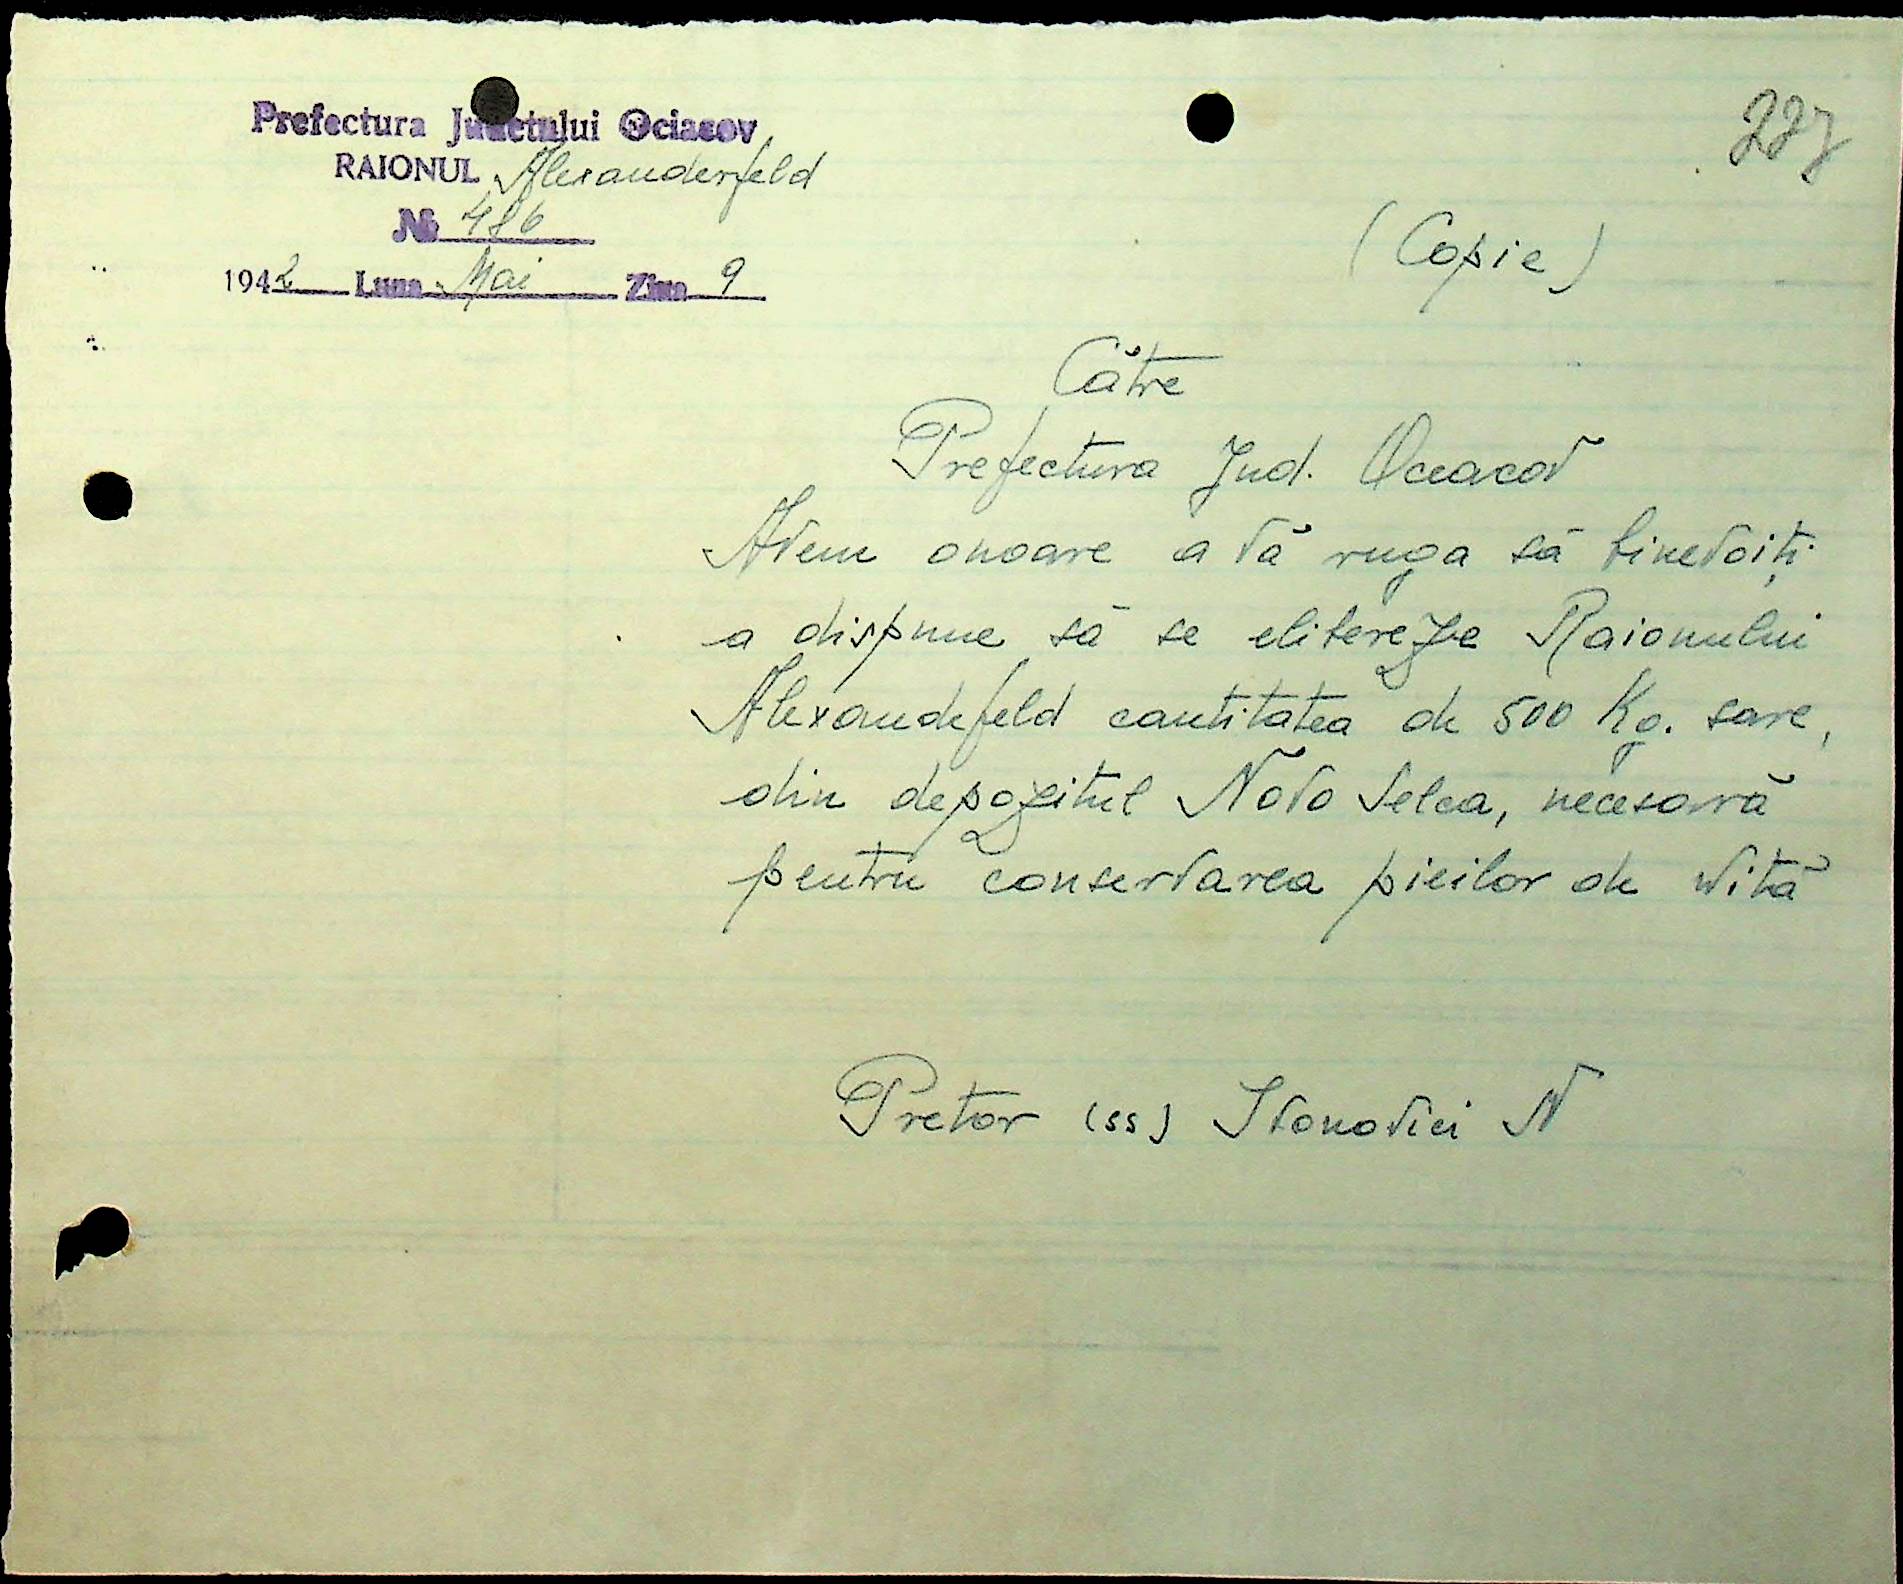 227
Prefectura Județului Ociacov
RAIONUL Alexanderfeld
№ 486
1942 Luna Mai Ziua 9
(Copie)
Către
Prefectura Jud. Oceacov
Avem onoare a vă ruga să binevoiți
a dispune să se elibereze Raionului
Alexandefeld cantitatea de 500 Kg. sare,
din depozitul Novo Selca, necesară
pentru conservarea pieilor de vită
Pretor (ss) Ivanovici N